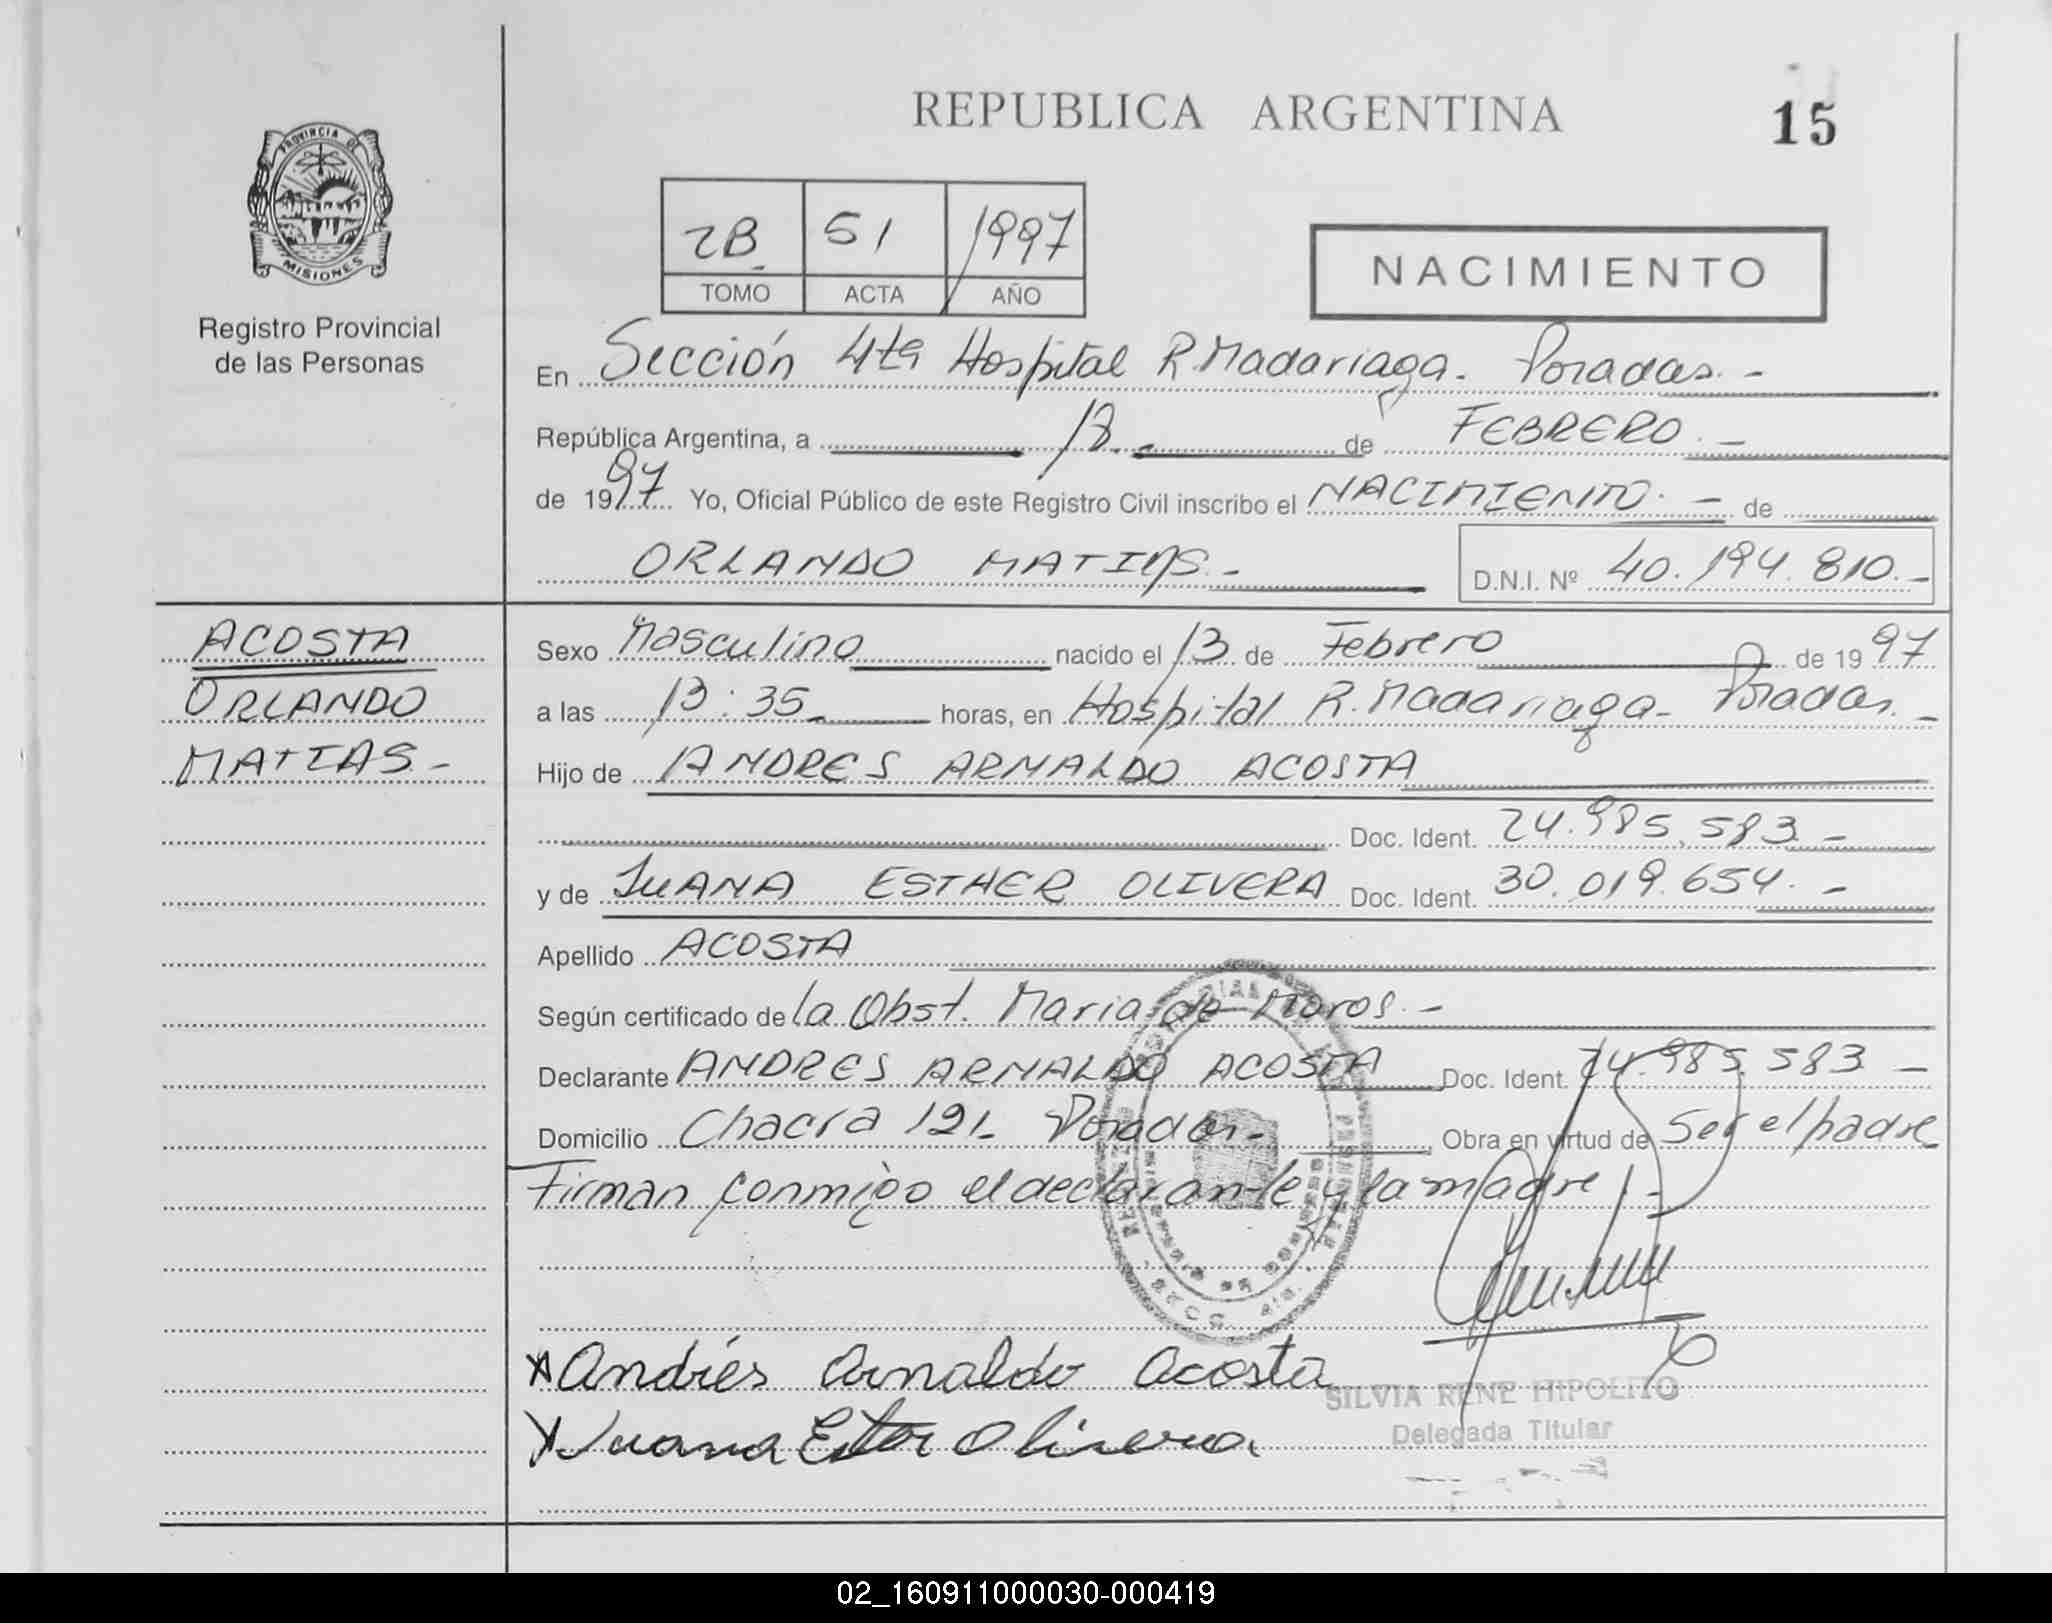 REPUBLICA ARGENTINA
15
PROVINCIA DE
MISIONES
Registro Provincial
de las Personas
2B 51 1997
TOMO ACTA AÑO
NACIMIENTO
En Sección 4ta Hospital R. Madariaga. Posadas. -
República Argentina, a 13. - de FEBRERO. -
de 1997 Yo, Oficial Público de este Registro Civil inscribo el NACIMIENTO. - de
ORLANDO MATIAS. - D.N.I. Nº 40.194.810. -
ACOSTA
ORLANDO
MATIAS. -
Sexo Masculino nacido el 13 de Febrero de 1997
a las 13:35 horas, en Hospital R. Madariaga - Posadas. -
Hijo de ANDRES ARNALDO ACOSTA
Doc. Ident. 24.985.583 -
y de JUANA ESTHER OLIVERA Doc. Ident. 30.019.654. -
Apellido ACOSTA
Según certificado de la Obst. Maria de Moros. -
Declarante ANDRES ARNALDO ACOSTA Doc. Ident. 24.985.583 -
Domicilio Chacra 121- Posadas - Obra en virtud de Ser el padre
Firman conmigo el declarante y la madre. -
x Andrés Arnaldo Acosta
x Juana Ester Olivera
SILVIA RENE HIPOLITO
Delegada Titular
02_160911000030-000419